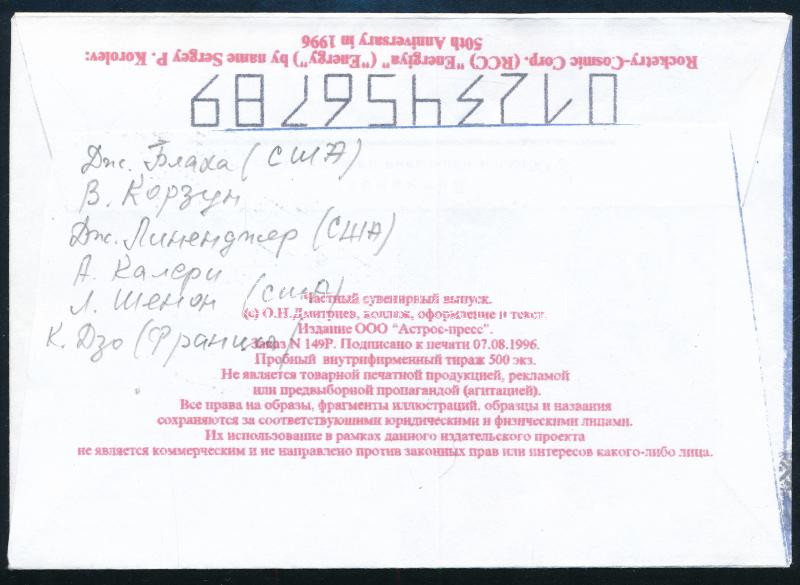 Rocketry-Cosmic Corp. (RCC) "Energiya" ("Energy") by name Sergey P. Korolev:
50th Anniversary in 1996
0123456789
Дж. Блаха (США)
В. Корзун
Дж. Линенджер (США)
А. Калери
Л. Шенон (США)
К. Дзо (Франция)
Частный сувенирный выпуск.
(с) О.Н.Дмитриев, коллаж, оформление и текст.
Издание ООО "Астрос-пресс".
Заказ N 149Р. Подписано к печати 07.08.1996.
Пробный внутрифирменный тираж 500 экз.
Не является товарной печатной продукцией, рекламой
или предвыборной пропагандой (агитацией).
Все права на образы, фрагменты иллюстраций, образцы и названия
сохраняются за соответствующими юридическими и физическими лицами.
Их использование в рамках данного издательского проекта
не является коммерческим и не направлено против законных прав или интересов какого-либо лица.